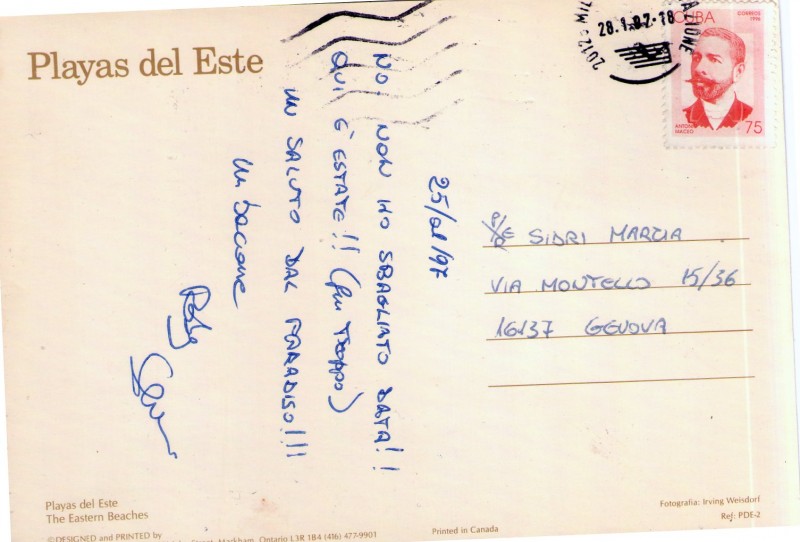 Playas del Este
28.1.97-18
CUBA
CORREOS
ANTONIO
MACEO
75
25/01/97
NO, NON HO SBAGLIATO DATA!!
QUI È ESTATE!! (PUR TROPPO)
UN SALUTO DAL PARADISO!!!
Un bacione
SIDRI MARZIA
VIA MONTELLO 15/36
16137 GENOVA
Playas del Este
The Eastern Beaches
© DESIGNED and PRINTED by
Street, Markham, Ontario L3R 1B4 (416) 477-9901
Printed in Canada
Fotografia: Irving Weisdorf
Ref: PDE-2